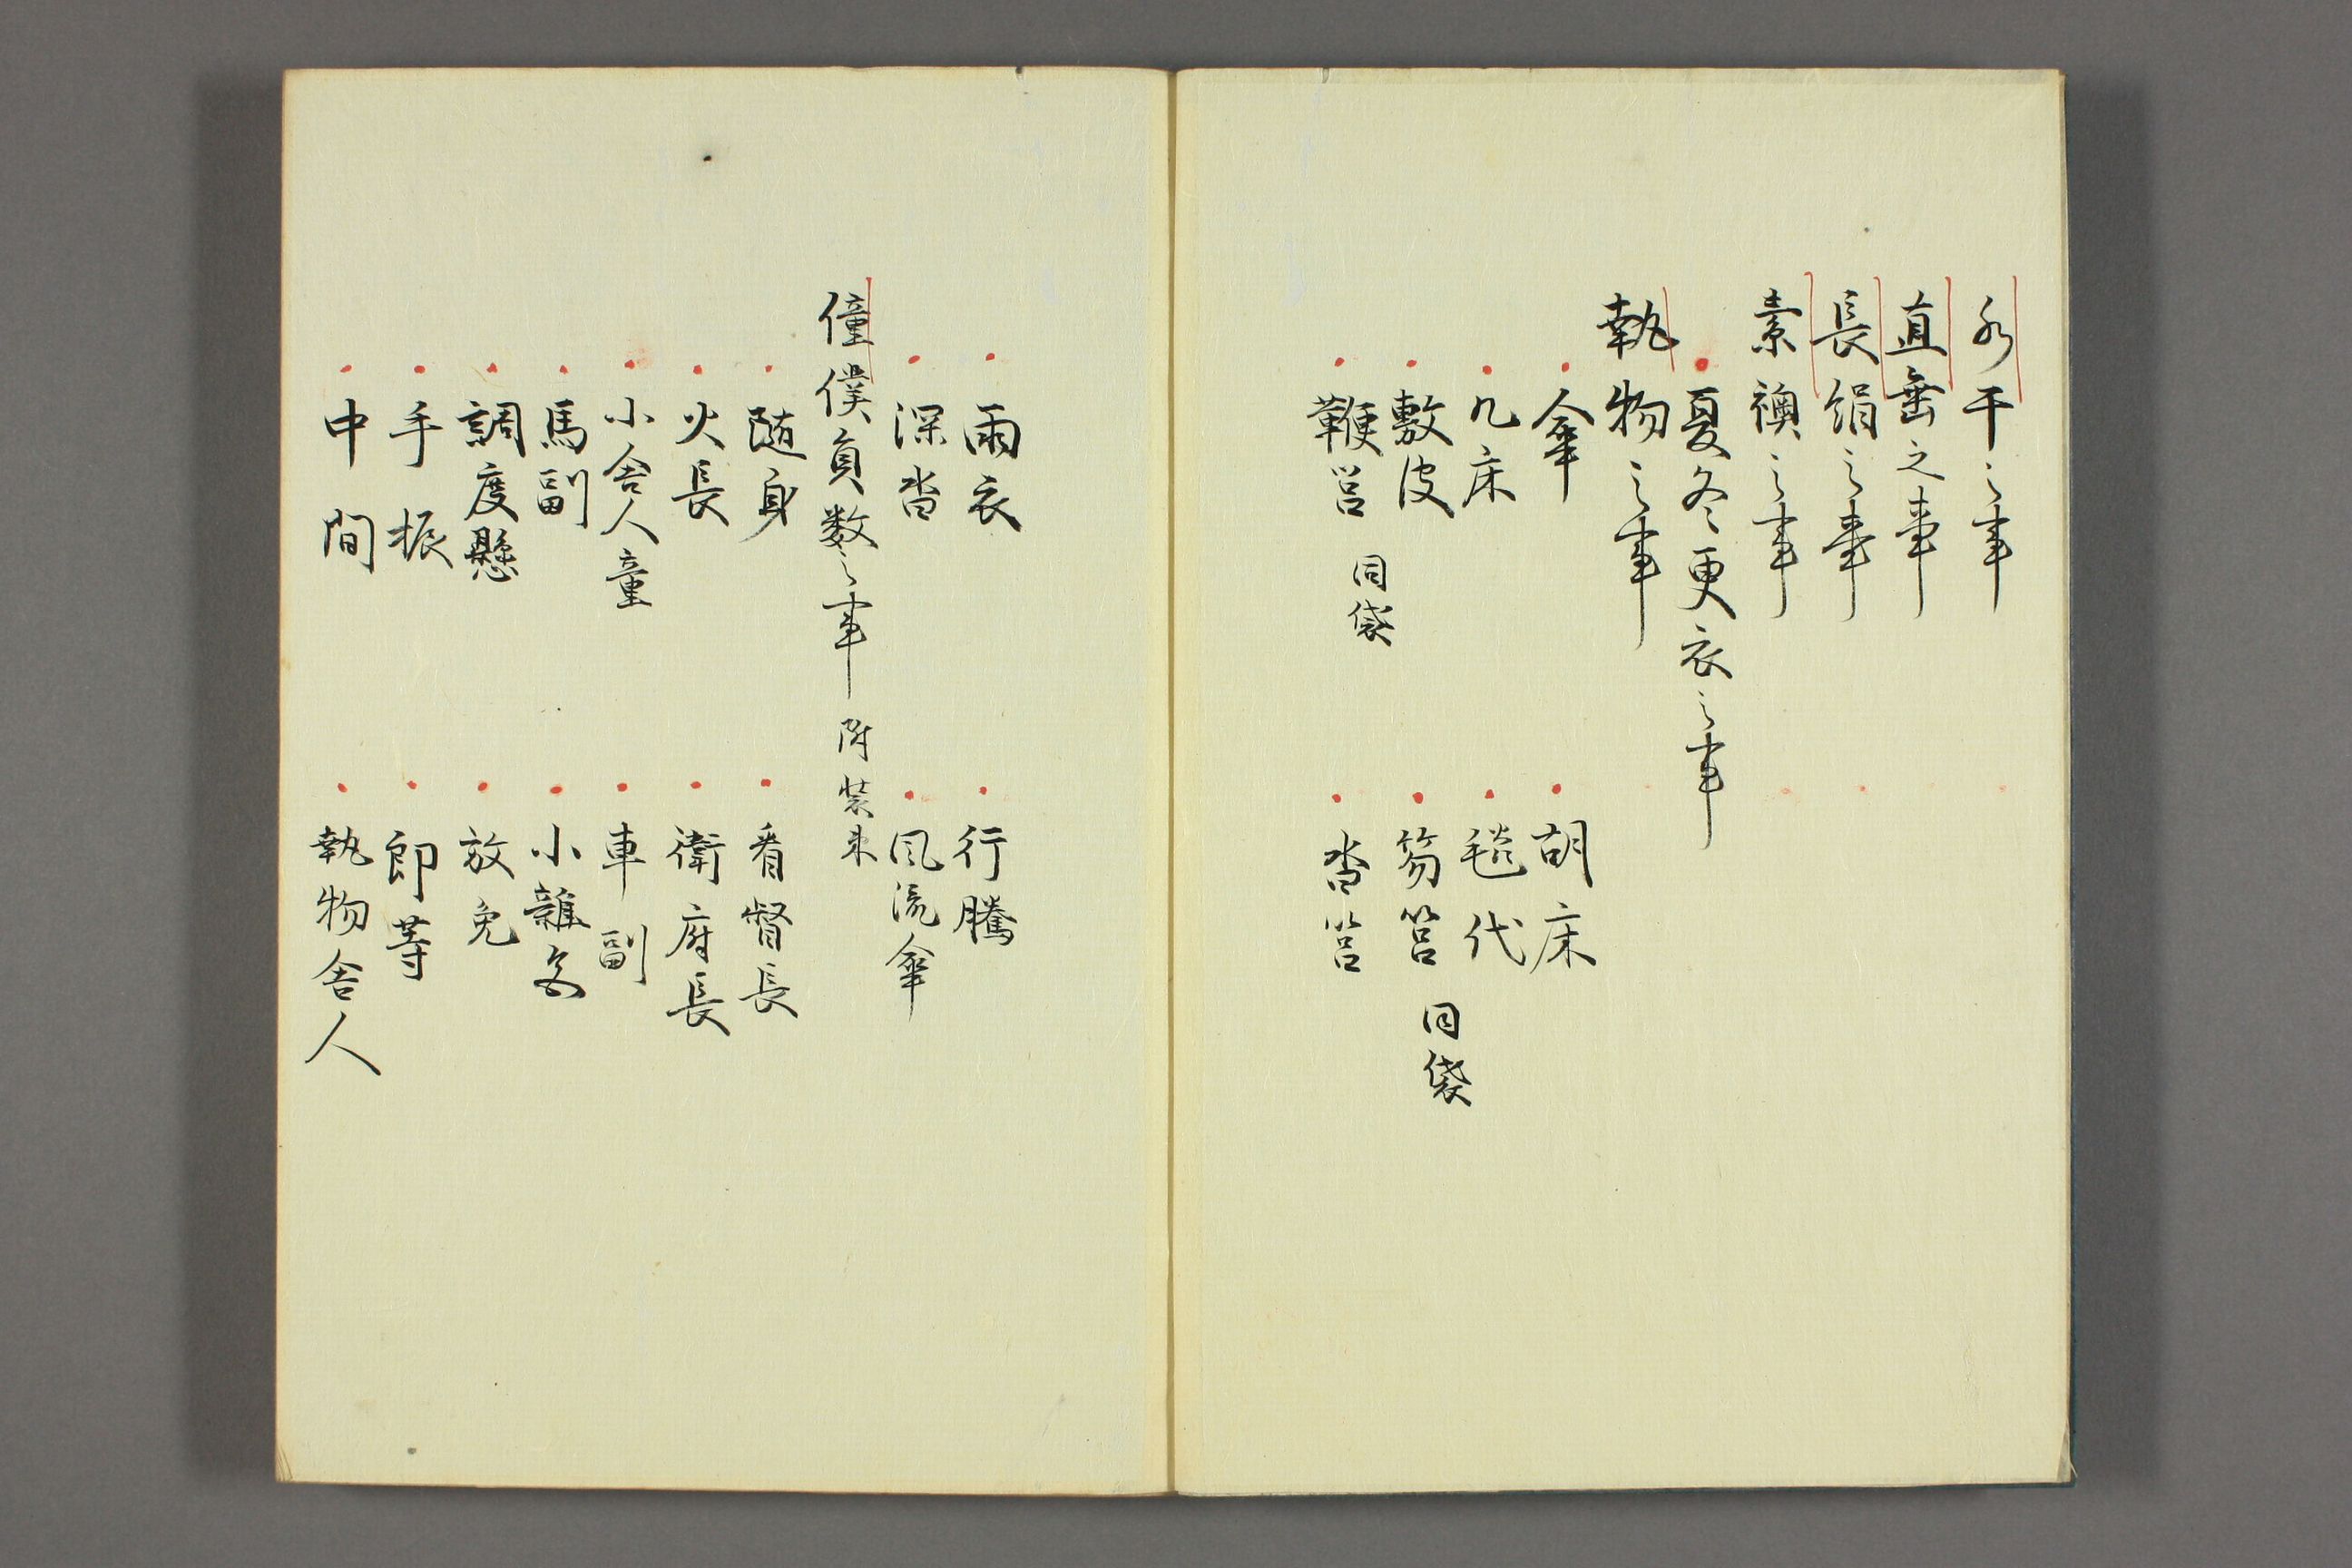 水干之事
直垂之事
長絹之事
素襖之事
夏冬更衣之事
執物之事
傘　胡床
几床　毯代
敷皮　笏筥 同袋
鞭筥 同袋　沓筥
雨衣　行騰
深沓　風流傘
僮僕員数之事 附装束
随身　看督長
火長　衛府長
小舎人童　車副
馬副　小雑色
調度懸　放免
手振　郎等
中間　執物舎人